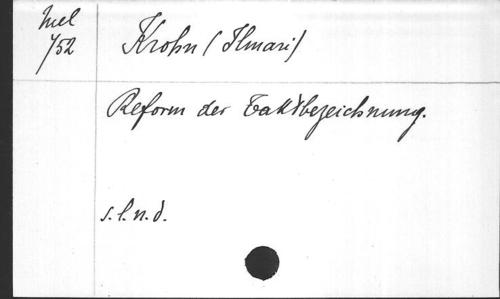 Mel
752
Krohn (Ilmari)
Reform der Taktbezeichnung.
s.l.n.d.